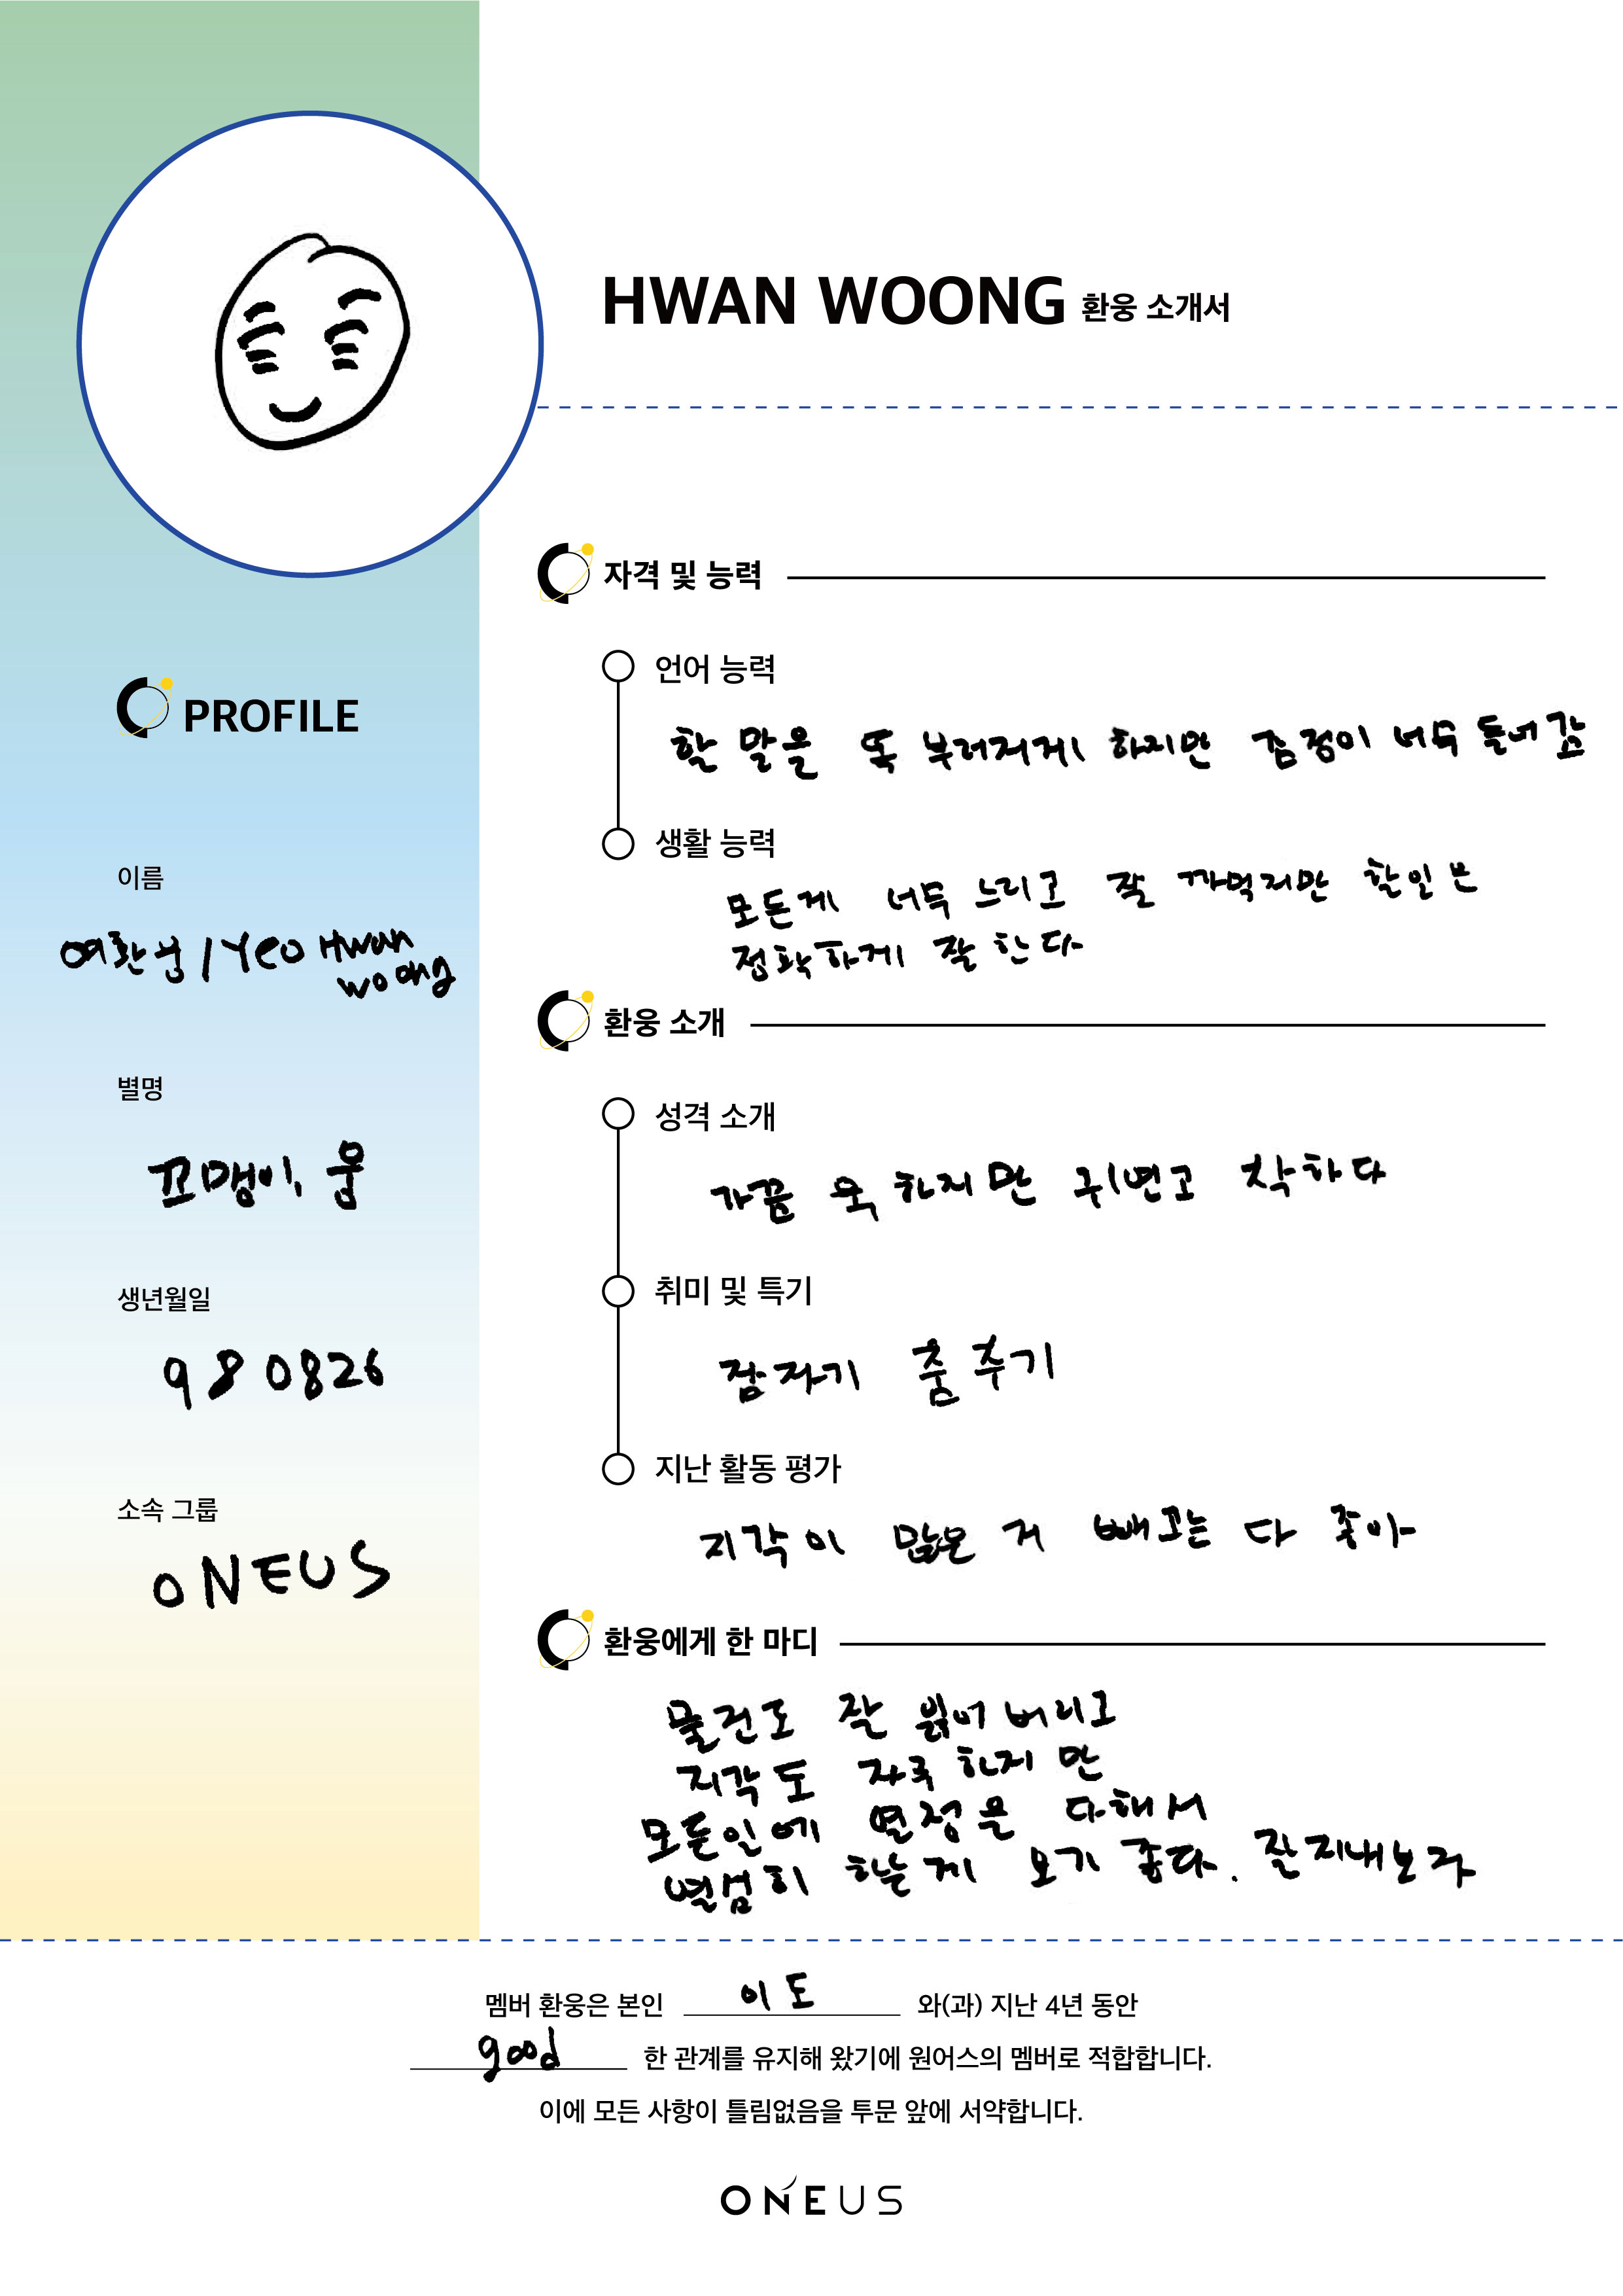 HWAN WOONG 환웅 소개서
PROFILE
이름
여환웅 / Yeo Hwan
woong
별명
꼬맹이, 웅
생년월일
980826
소속 그룹
ONEUS
자격 및 능력
언어 능력
할 말을 똑 부러지게 하지만 감정이 너무 들어감
생활 능력
모든게 너무 느리고 잘 까먹지만 할일은
정확하게 잘 한다
환웅 소개
성격 소개
가끔 욱 하지만 귀엽고 착하다
취미 및 특기
잠자기 춤추기
지난 활동 평가
지각이 많은 거 빼고는 다 좋아
환웅에게 한 마디
물건도 잘 잃어버리고
지각도 자주 하지만
모든일에 열정을 다해서
열심히 하는게 보기 좋다. 잘 지내보자
멤버 환웅은 본인 이도 와(과) 지난 4년 동안
good 한 관계를 유지해 왔기에 원어스의 멤버로 적합합니다.
이에 모든 사항이 틀림없음을 투문 앞에 서약합니다.
ONEUS